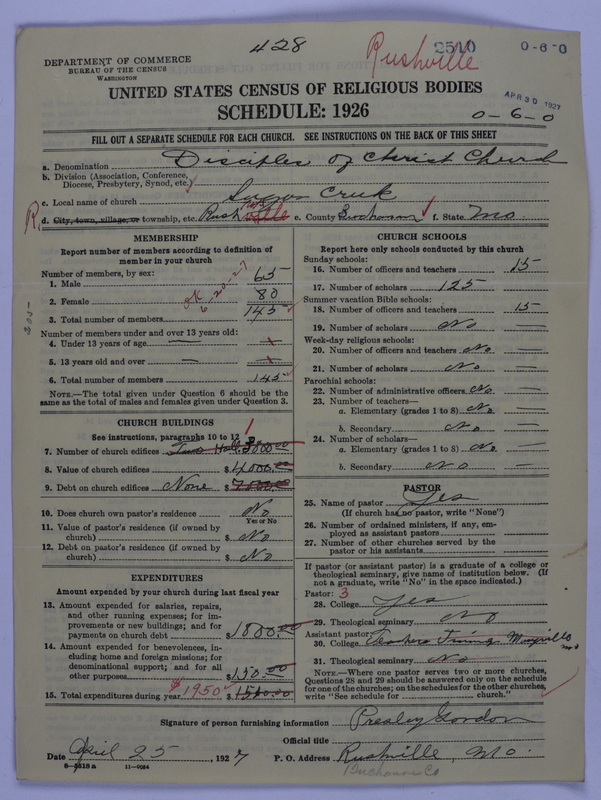 428
Rushville
2510
0-6-0
DEPARTMENT OF COMMERCE
BUREAU OF THE CENSUS
WASHINGTON
APR 30 1927
UNITED STATES CENSUS OF RELIGIOUS BODIES
SCHEDULE: 1926
0-6-0
FILL OUT A SEPARATE SCHEDULE FOR EACH CHURCH. SEE INSTRUCTIONS ON THE BACK OF THIS SHEET
a. Denomination Disciples of Christ Church
b. Division (Association, Conference, Diocese, Presbytery, Synod, etc.)
c. Local name of church Sugar Creek
R. d. City, town, village, or township, etc. Rushville e. County Buchanan f. State Mo
MEMBERSHIP
Report number of members according to definition of
member in your church
Number of members, by sex:
1. Male 65
2. Female 80
OK 6-20-27
3. Total number of members 145
Number of members under and over 13 years old:
4. Under 13 years of age — x
5. 13 years old and over — x
6. Total number of members 145
NOTE.—The total given under Question 6 should be the
same as the total of males and females given under Question 3.
CHURCH BUILDINGS
See instructions, paragraphs 10 to 12
7. Number of church edifices
8. Value of church edifices $ 4000.00
9. Debt on church edifices None $
10. Does church own pastor's residence No
Yes or No
11. Value of pastor's residence (if owned by
church) $ No
12. Debt on pastor's residence (if owned by
church) $ No
EXPENDITURES
Amount expended by your church during last fiscal year
13. Amount expended for salaries, repairs,
and other running expenses; for im-
provements or new buildings; and for
payments on church debt $1800.00
14. Amount expended for benevolences, in-
cluding home and foreign missions; for
denominational support; and for all
other purposes $150.00
15. Total expenditures during year $1950
CHURCH SCHOOLS
Report here only schools conducted by this church
Sunday schools:
16. Number of officers and teachers 15
17. Number of scholars 125
Summer vacation Bible schools:
18. Number of officers and teachers 15
19. Number of scholars No —
Week-day religious schools:
20. Number of officers and teachers No —
21. Number of scholars No —
Parochial schools:
22. Number of administrative officers No —
23. Number of teachers—
a. Elementary (grades 1 to 8) No —
b. Secondary No —
24. Number of scholars—
a. Elementary (grades 1 to 8) No —
b. Secondary No —
PASTOR
25. Name of pastor Yes
(If church has no pastor, write "None")
26. Number of ordained ministers, if any, em-
ployed as assistant pastors
27. Number of other churches served by the
pastor or his assistants
If pastor (or assistant pastor) is a graduate of a college or
theological seminary, give name of institution below. (If
not a graduate, write "No" in the space indicated.)
Pastor: 3
28. College Yes
29. Theological seminary No
Assistant pastor:
30. College Teachers Mo
31. Theological seminary No
NOTE.—Where one pastor serves two or more churches,
Questions 28 and 29 should be answered only on the schedule
for one of the churches; on the schedules for the other churches,
write "See schedule for church."
Signature of person furnishing information Presley Gordon
Official title
Date April 25, 1927 P. O. Address Rushville, Mo.
8-5518 a 11-9054
Buchanan Co